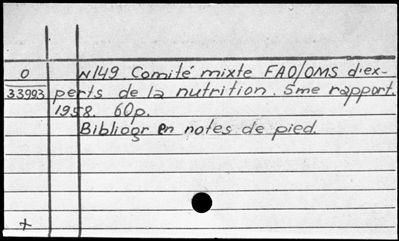 0 N149 Comité mixte FAO/OMS d'ex-
33993 perts de la nutrition. 5me rapport.
1958. 60p.
Bibliogr en notes de pied.
+